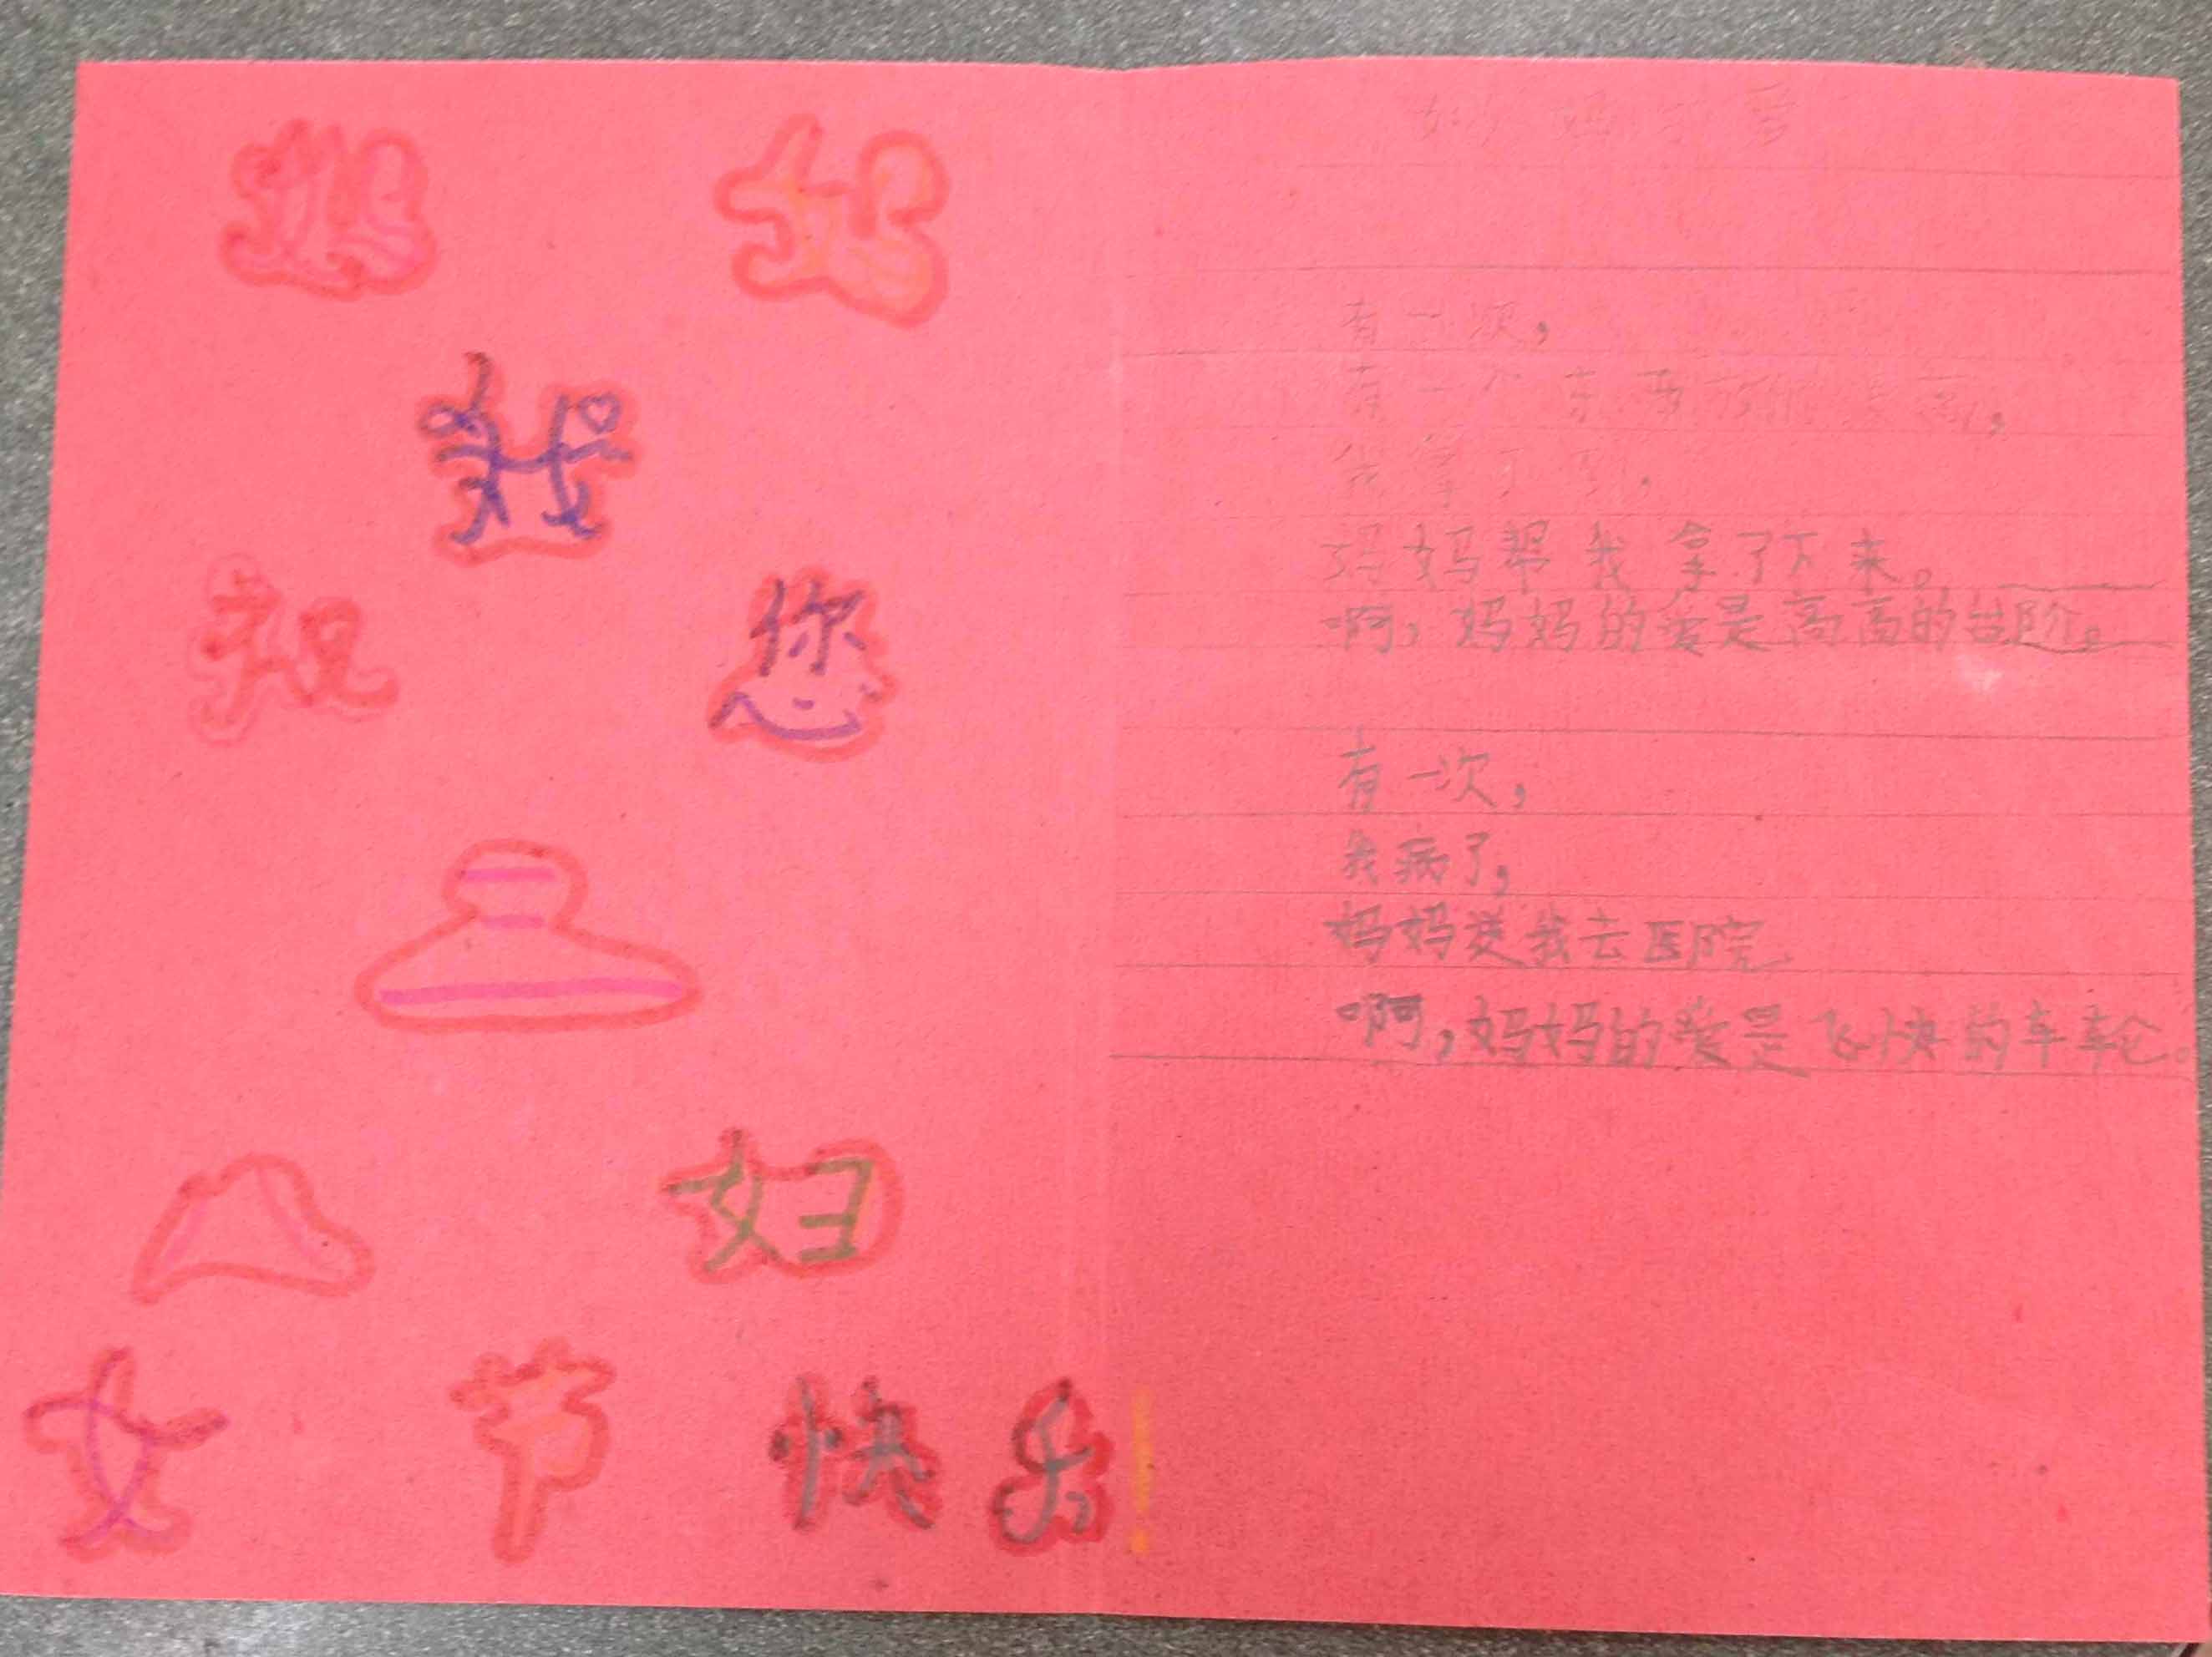 妈 妈
我
祝 您
三
八 妇
女 节 快 乐 !
妈妈的爱
有一次,
有一个东西放得很高,
我拿不到,
妈妈帮我拿了下来。
啊,妈妈的爱是高高的台阶。
有一次,
我病了,
妈妈送我去医院
啊,妈妈的爱是飞快的车轮。